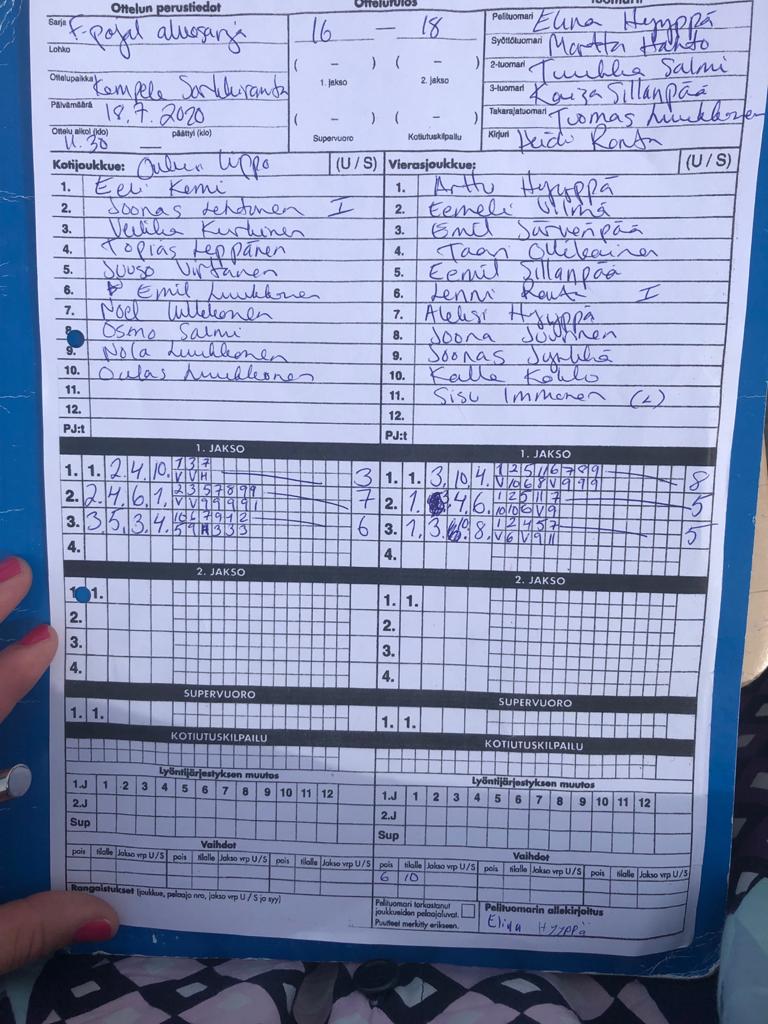 Ottelun perustiedot
Ottelutulos
Sarja F-pojat aluesarja
Lohko
Ottelupaikka Kempele Sarkkiranta
Päivämäärä 18.7.2020
Ottelu alkoi (klo) 11.30 päättyi (klo) —
16 — 18
( – ) ( – )
1. jakso 2. jakso
( – ) ( – )
Supervuoro Kotiutuskilpailu
Pelituomari Elina Hyyppä
Syöttötuomari Martta Hahto
2-tuomari Tuukka Salmi
3-tuomari Kaiza Sillanpää
Takarajatuomari Tuomas Luukkonen
Kirjuri Heidi Ronta
Kotijoukkue: Oulun Lippo (U / S)
1. Eeli Kemi
2. Joonas Lehtonen I
3. Veikka Kurkinen
4. Topias Leppänen
5. Juuso Virtanen
6. Emil Luukkonen
7. Noel
8. Osmo Salmi
9. Nola Luukkonen
10. Luukkonen
11.
12.
PJ:t
Vierasjoukkue: (U / S)
1. Arttu Hyyppä
2. Eemeli Vilmä
3. Emil Järvenpää
4. Taavi Ollikainen
5. Eemil Sillanpää
6. Lenni Ronta I
7. Aleksi Hyyppä
8. Joona Juntinen
9. Joonas Jynkkä
10. Kalle Kohlo
11. Sisu Immonen (L)
12.
PJ:t
1. JAKSO
1. 1. 2. 4. 10. 3
2. 2. 4. 6. 1. 7
3. 3. 5. 3. 4. 6
4.
1. JAKSO
1. 1. 3. 10. 4. 8
2. 1. 4. 6. 5
3. 1. 3. 8. 5
4.
2. JAKSO
1. 1.
2.
3.
4.
2. JAKSO
1. 1.
2.
3.
4.
SUPERVUORO
1. 1.
SUPERVUORO
1. 1.
KOTIUTUSKILPAILU
KOTIUTUSKILPAILU
Lyöntijärjestyksen muutos
1.J 1 2 3 4 5 6 7 8 9 10 11 12
2.J
Sup
Lyöntijärjestyksen muutos
1.J 1 2 3 4 5 6 7 8 9 10 11 12
2.J
Sup
Vaihdot
pois tilalle Jakso vrp U/S pois tilalle Jakso vrp U/S pois tilalle Jakso vrp U/S
Vaihdot
pois tilalle Jakso vrp U/S pois tilalle Jakso vrp U/S pois tilalle Jakso vrp U/S
6 10
Rangaistukset (joukkue, pelaaja nro, jakso vrp U / S ja syy)
Pelituomari tarkastanut
joukkueiden pelaajaluvat.
Puutteet merkitty erikseen.
Pelituomarin allekirjoitus
Elina Hyyppä